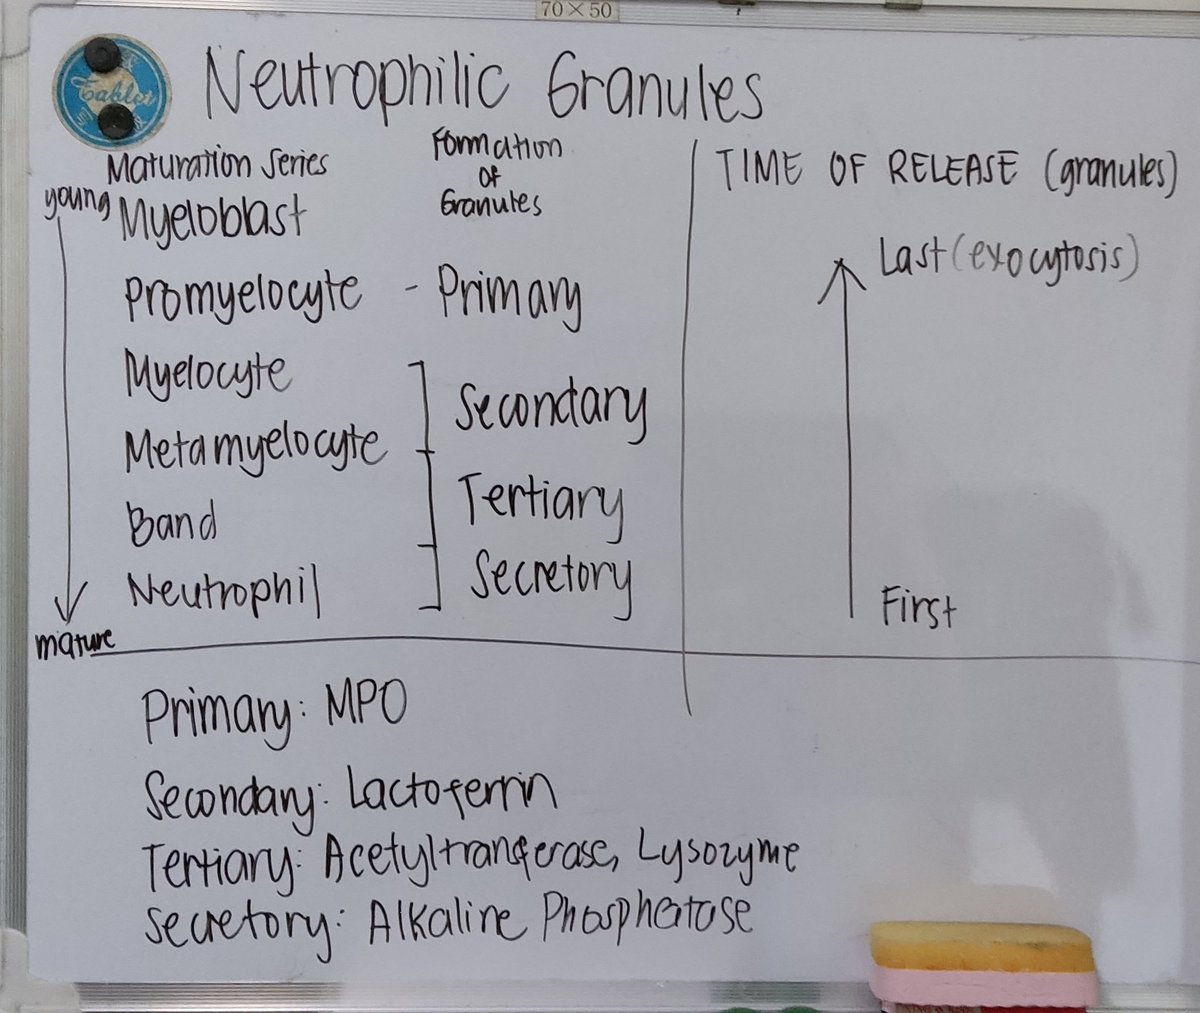 70×50
Tablet
Neutrophilic Granules
Maturation Series
Formation
of
Granules
young
Myeloblast
Promyelocyte - Primary
Myelocyte
Secondary
Metamyelocyte
Tertiary
Band
Secretory
Neutrophil
mature
TIME OF RELEASE (granules)
Last (exocytosis)
First
Primary: MPO
Secondary: Lactoferrin
Tertiary: Acetyltranferase, Lysozyme
Secretory: Alkaline Phosphatase